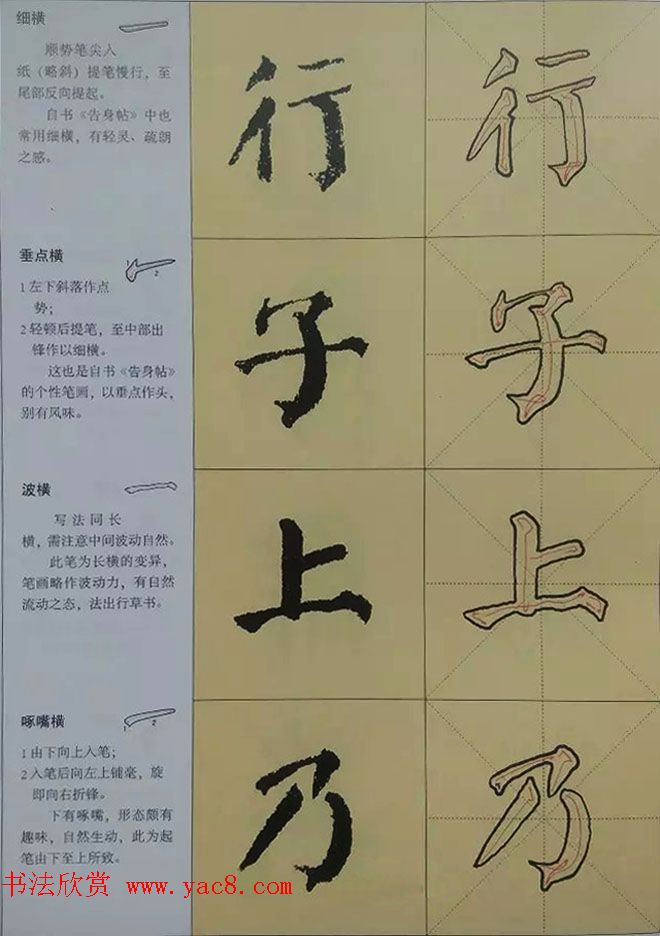 细横
顺势笔尖入
纸（略斜）提笔慢行，至
尾部反向提起。
自书《告身帖》中也
常用细横，有轻灵、疏朗
之感。
行
行
垂点横
1 2
1 左下斜落作点
势；
2 轻顿后提笔，至中部出
锋作以细横。
这也是自书《告身帖》
的个性笔画，以垂点作头，
别有风味。
子
子
波横
写法同长
横，需注意中间波动自然。
此笔为长横的变异，
笔画略作波动力，有自然
流动之态，法出行草书。
上
上
啄嘴横
1 2
1 由下向上入笔；
2 入笔后向左上铺毫，旋
即向右折锋。
下有啄嘴，形态颇有
趣味，自然生动，此为起
笔由下至上所致。
乃
乃
书法欣赏 www.yac8.com